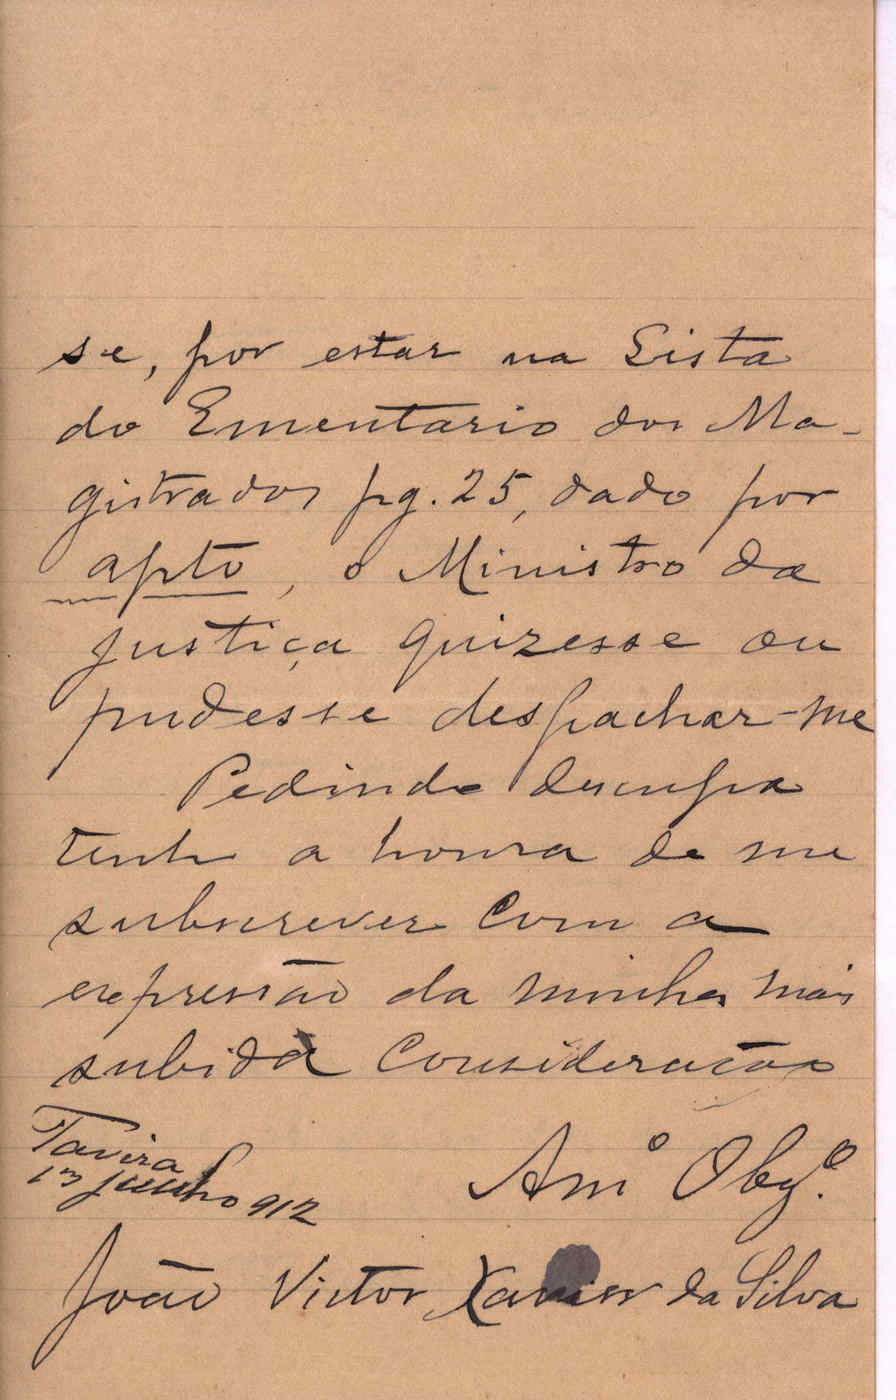 se, por estar na Lista
do Ementario dos Ma-
gistrados pg. 25, dado por
apto, o Ministro da
justiça quizesse ou
pudesse despachar-me
Pedindo desculpa
tenho a honra de me
subscrever com a
expressão da minha mais
subida consideração
Tavira
13 Junho 912
Amº Obgº.
João Victor Xavier da Silva